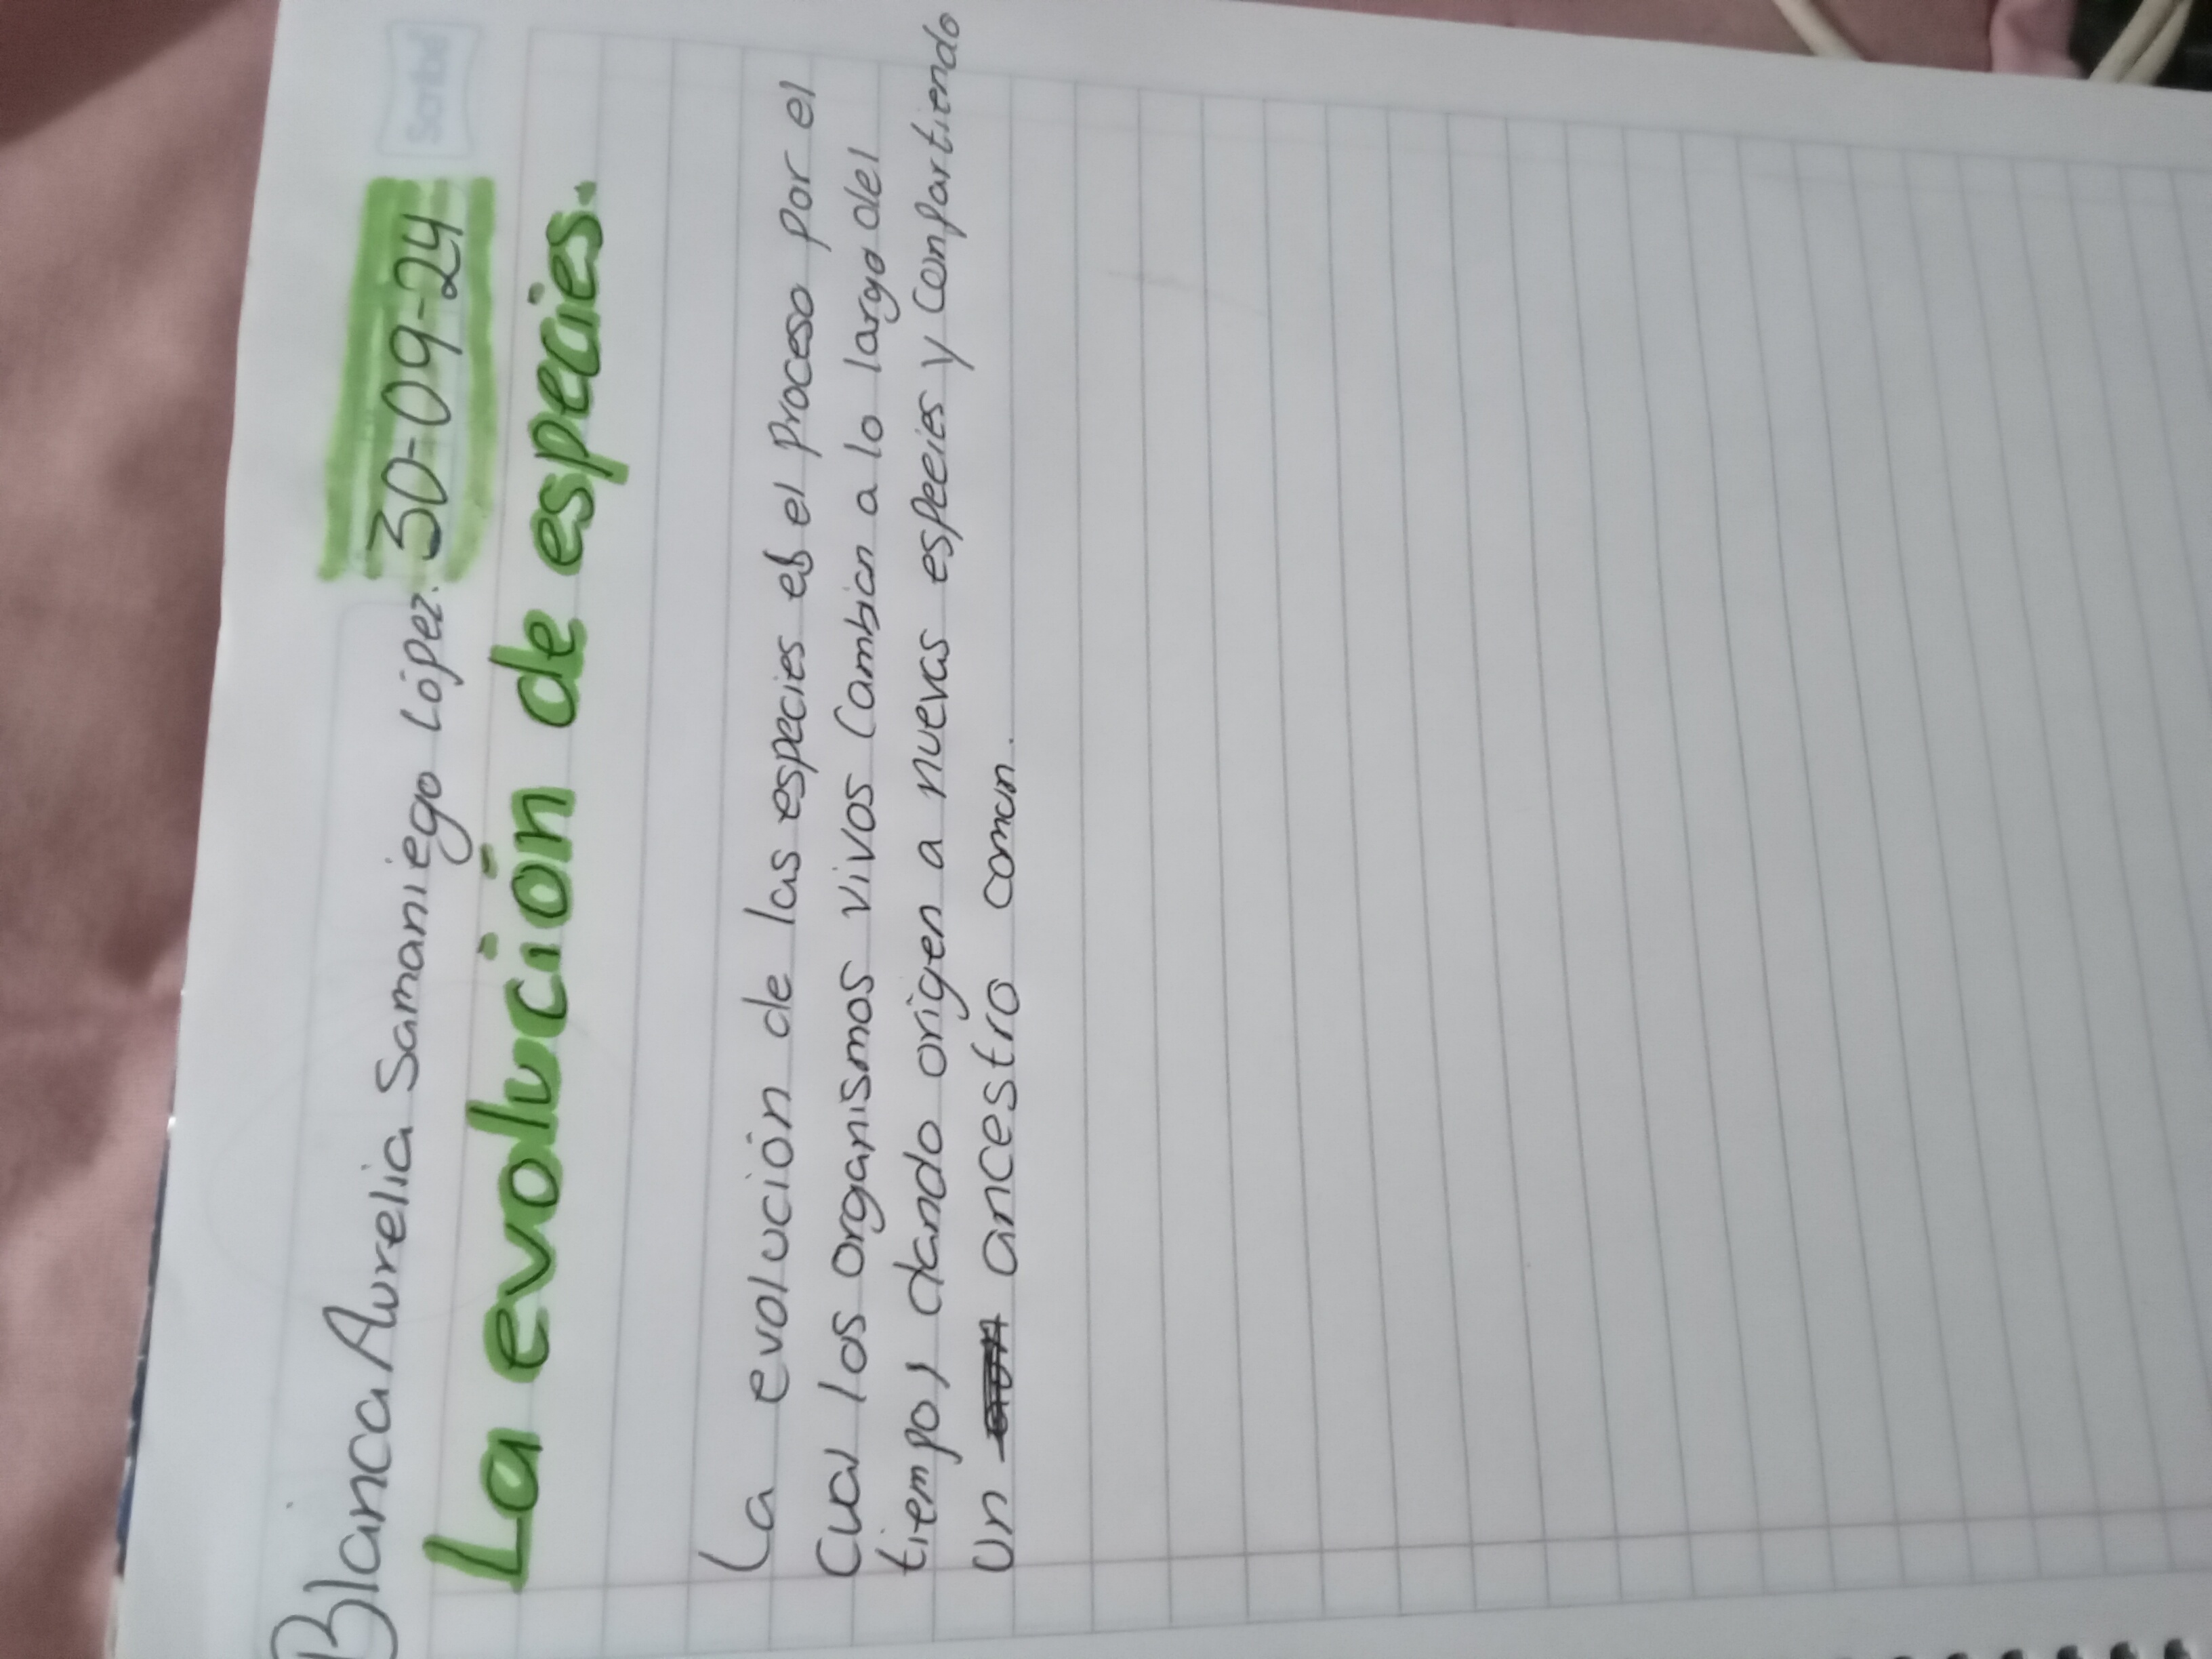 Blanca Aurelia Samaniego López. 30-09-24
Scribe
La evolución de especies.
La evolución de las especies es el proceso por el
cual los organismos vivos cambian a lo largo del
tiempo, dando origen a nuevas especies y compartiendo
un ancestro comun.